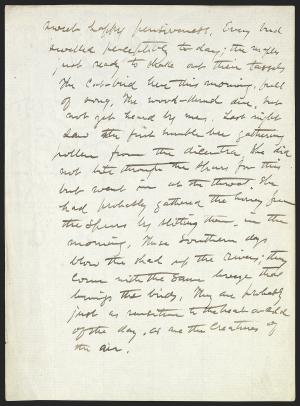 sweet happy pensiveness. Every bud
swelled perceptibly to-day; the maples
just ready to shake out their tassels
The Cat-bird here this morning, full
of song. The wood-thrush also, but
not yet heard by me. Last night
saw the first bumble bee gathering
pollen from the dicentra. She did
not bite through the spurs for this
but went in at the throat. She
had probably gathered the honey from
the spurs by slitting them, in the
morning. These Southern days
blow the shad up the rivers; they
come with the same breeze that
brings the birds. They are probably
just as sensitive to the heat or cold
of the day, as are the creatures of
the air.